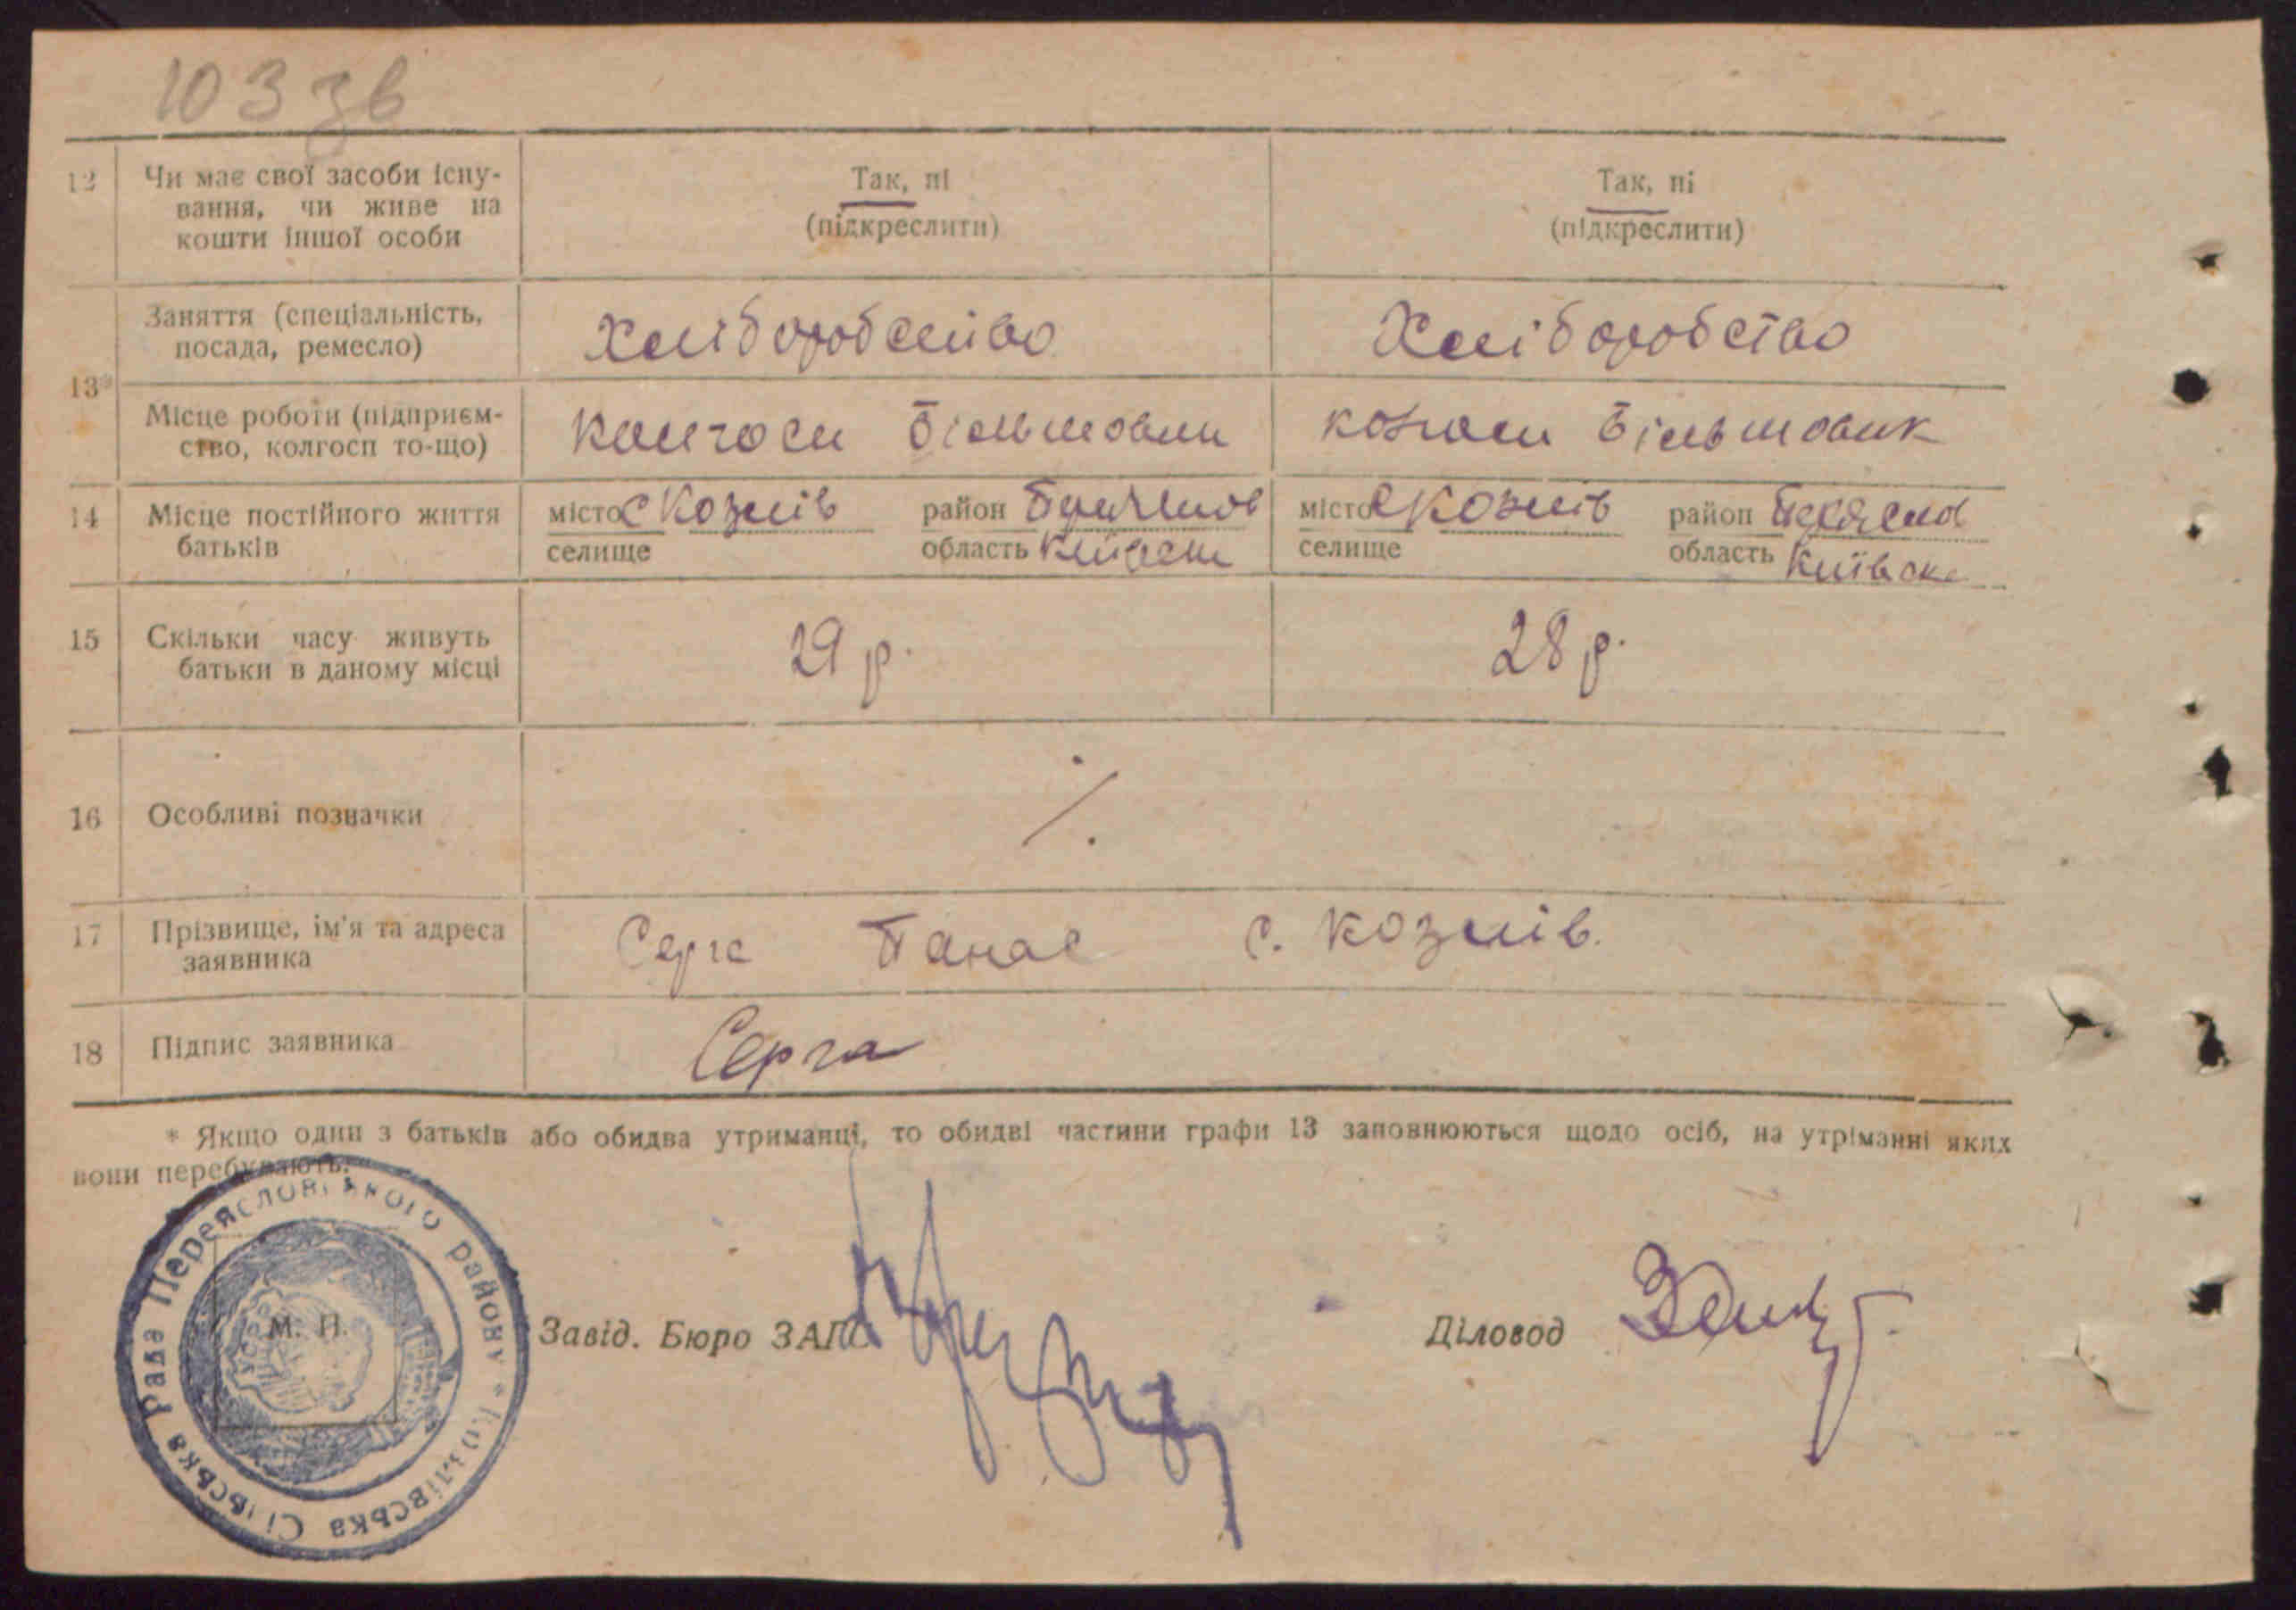 103 зв
12 Чи має свої засоби існу- Так, ні Так, ні
вання, чи живе на (підкреслити) (підкреслити)
кошти іншої особи
Заняття (спеціальність, Хліборобство Хліборобство
посада, ремесло)
13*
Місце роботи (підприєм- Більшовик
ство, колгосп то-що)
14 Місце постійного життя місто с Козлів район місто с Козлів район
батьків селище область селище область Київська
15 Скільки часу живуть 29 р. 28 р.
батьки в даному місці
16 Особливі позначки ٪
17 Прізвище, ім'я та адреса Серга Панас с. Козлів.
заявника
18 Підпис заявника Серга
* Якщо один з батьків або обидва утриманці, то обидві частини графи 13 заповнюються щодо осіб, на утріманні яких
вони перебувають.
Козлівська Сільська Рада Переяславського району
УСРР
М. П.
Завід. Бюро ЗАГС Діловод